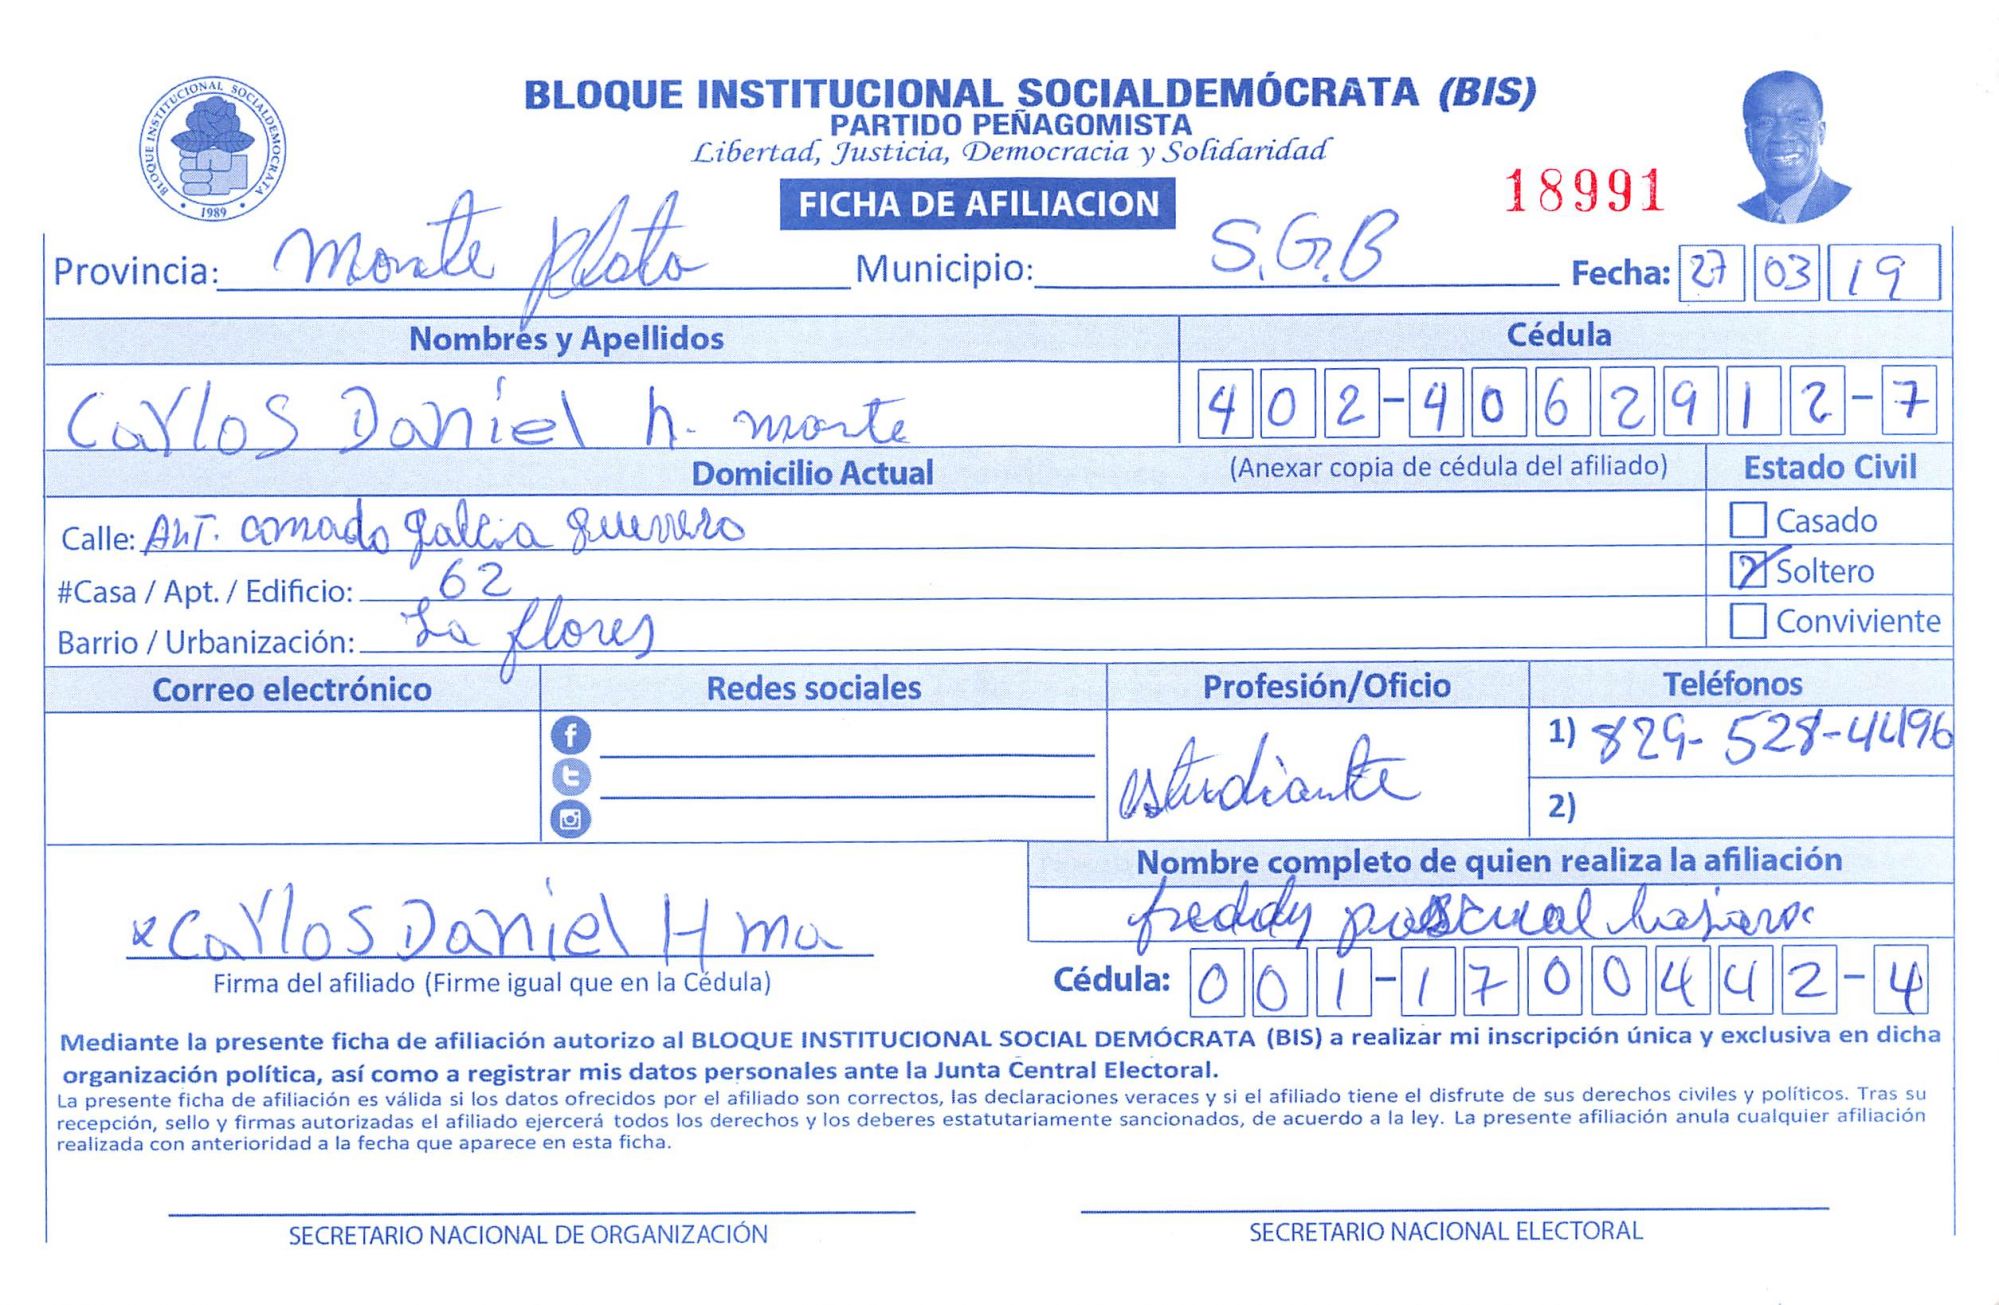 BLOQUE INSTITUCIONAL SOCIALDEMOCRATA
1989
BLOQUE INSTITUCIONAL SOCIALDEMÓCRATA (BIS)
PARTIDO PEÑAGOMISTA
Libertad, Justicia, Democracia y Solidaridad
FICHA DE AFILIACION
18991
Provincia: Monte plata Municipio: S.G.B Fecha: 27 03 19
Nombres y Apellidos Cédula
Carlos Daniel h. monte 402-4062912-7
Domicilio Actual (Anexar copia de cédula del afiliado) Estado Civil
Calle: Ant. garcia guerrero Casado
#Casa / Apt. / Edificio: 62 Soltero
Barrio / Urbanización: La flores Conviviente
Correo electrónico Redes sociales Profesión/Oficio Teléfonos
estudiante 1) 829-528-4496
2)
Nombre completo de quien realiza la afiliación
freddy pascual
x Carlos Daniel H ma
Firma del afiliado (Firme igual que en la Cédula) Cédula: 001-1700442-4
Mediante la presente ficha de afiliación autorizo al BLOQUE INSTITUCIONAL SOCIAL DEMÓCRATA (BIS) a realizar mi inscripción única y exclusiva en dicha
organización política, así como a registrar mis datos personales ante la Junta Central Electoral.
La presente ficha de afiliación es válida si los datos ofrecidos por el afiliado son correctos, las declaraciones veraces y si el afiliado tiene el disfrute de sus derechos civiles y políticos. Tras su
recepción, sello y firmas autorizadas el afiliado ejercerá todos los derechos y los deberes estatutariamente sancionados, de acuerdo a la ley. La presente afiliación anula cualquier afiliación
realizada con anterioridad a la fecha que aparece en esta ficha.
SECRETARIO NACIONAL DE ORGANIZACIÓN SECRETARIO NACIONAL ELECTORAL